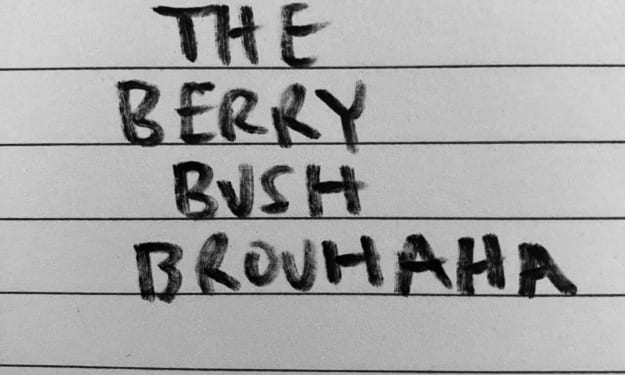 THE
BERRY
BUSH
BROUHAHA